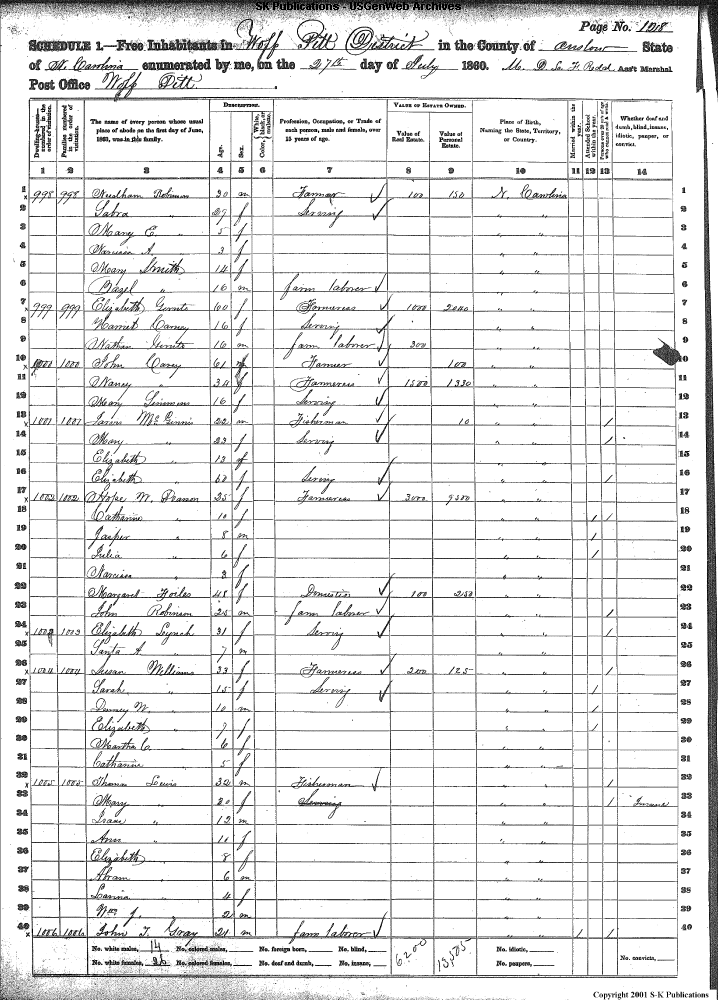 SK Publications - USGenWeb Archives
Page No. 108
SCHEDULE 1.—Free Inhabitants in Wolf Pitt District in the County of Onslow State
of N. Carolina enumerated by me, on the 27th day of July 1860. Ass't Marshal
Post Office Wolf Pitt.
Dwelling-houses—numbered in the order of visitation.
Families numbered in the order of visitation.
The name of every person whose usual place of abode on the first day of June, 1860, was in this family.
DESCRIPTION.
Age.
Sex.
Color, White, black, or mulatto.
Profession, Occupation, or Trade of each person, male and female, over 15 years of age.
VALUE OF ESTATE OWNED.
Value of Real Estate.
Value of Personal Estate.
Place of Birth, Naming the State, Territory, or Country.
Married within the year.
Attended School within the year.
Whether deaf and dumb, blind, insane, idiotic, pauper, or convict.
1 2 3 4 5 6 7 8 9 10 11 12 13 14
1 998 998 Needham Robinson 30 m Farmer 100 150 N. Carolina 1
2 Sabra " 27 f Serving " " 2
3 Mary E. " 5 f " " 3
4 Narcissa A. " 3 f " " 4
5 Mary Smith 14 f " " 5
6 Bazel " 16 m farm laborer " " 6
7 999 999 Elizabeth 60 f Farmeress 1000 2000 " " 7
8 Harriet Carney 16 f Serving " " 8
9 Nathan 16 m farm laborer 300 " " 9
10 1000 1000 John Carey 61 m Farmer 100 " " 10
11 Nancy " 34 f Farmeress 1500 1330 " " 11
12 Mary 16 f Serving " " 12
13 1001 1001 McGinnis 22 m Fisherman 10 " " / 13
14 Mary " 23 f Serving " " / 14
15 Elizabeth " 12 f " " 15
16 Elizabeth 60 f Serving " " / 16
17 1002 1002 Hope W. Pearson 35 f Farmeress 3000 9500 " " 17
18 Catharine " 10 f " " / / 18
19 Jasper " 8 m " " / 19
20 Julia " 6 f " " / 20
21 Narcissa " 3 f " " 21
22 Margaret 48 f Domestic 100 250 " " 22
23 John Robinson 25 m farm laborer " " / 23
24 1003 1003 Elizabeth Lynch 31 f Serving " " / 24
25 Santa A. " 7 m " " 25
26 1004 1004 Susan Williams 33 f Farmeress 200 125 " " / 26
27 Sarah " 15 f Serving " " / 27
28 W. " 10 m " " / 28
29 Elizabeth " 7 f " " / 29
30 Martha C. " 6 f " " 30
31 Catharine " 5 f " " 31
32 1005 1005 Thomas Lewis 32 m Fisherman " " / 32
33 Mary " 30 f Serving " " / Insane 33
34 Isaac " 12 m " " 34
35 Ann " 10 f " " 35
36 Elizabeth " 8 f " " 36
37 Abram " 6 m " " 37
38 Lavina " 4 f " " 38
39 Wm J. " 2 m " " 39
40 1006 1006 John T. Gray 21 m farm laborer " " / / 40
No. white males, 14 No. colored males, No. foreign born, No. blind, 6200 13,505 No. idiotic,
No. white females, 26 No. colored females, No. deaf and dumb, No. insane, No. paupers, No. convicts,
Copyright 2001 S-K Publications